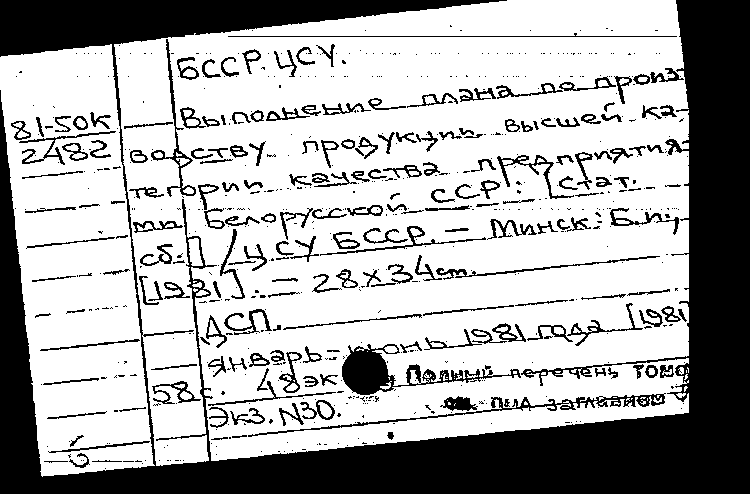 БССР. ЦСУ.
81-50К
2482
Выполнение плана по произ-
водству продукции высшей ка-
тегории качества предприятия-
ми Белорусской ССР: [Стат.
сб.] / ЦСУ БССР. – Минск: Б.и.,
[1981]. – 28×34 см.
ДСП.
Январь-июнь 1981 года [1981]
58 с. 48 эк Полный перечень томо
Экз. N30. см. под заглавием
б